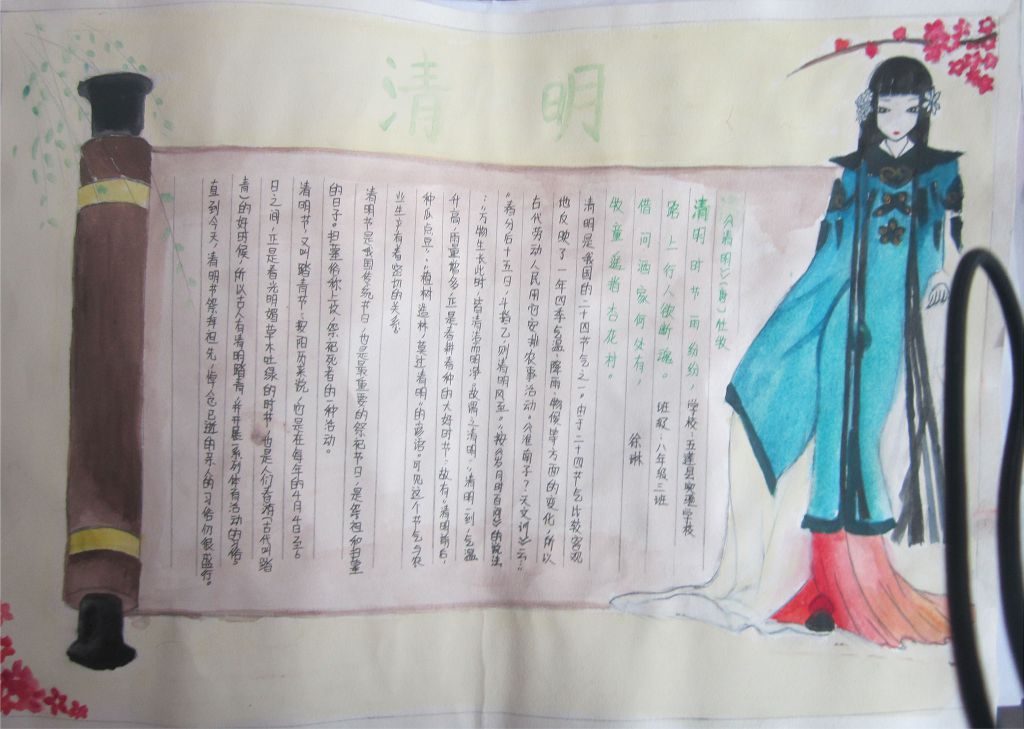 清 明
《清明》(唐)杜牧
清明时节雨纷纷, 学校:五莲县实验学校
路上行人欲断魂。 班级:八年级三班
借问酒家何处有, 徐琳
牧童遥指杏花村。
清明是我国的二十四节气之一。由于二十四节气比较客观
地反映了一年四季气温、降雨、物候等方面的变化,所以
古代劳动人民用它安排农事活动。《淮南子?天文训》云:“
春分后十五日,斗指乙,则清明风至。”按《岁月时百问》的说法
:“万物生长此时,皆清洁而明净。故谓之清明。”清明一到,气温
升高,雨量增多,正是春耕春种的大好时节。故有“清明前后,
种瓜点豆”、“植树造林,莫过清明”的农谚。可见这个节气与农
业生产有着密切的关系。
清明节是我国传统节日,也是最重要的祭祀节日,是祭祖和扫墓
的日子。扫墓俗称上坟,祭祀死者的一种活动。
清明节,又叫踏青节,按阳历来说,它是在每年的4月4日至6
日之间,正是春光明媚草木吐绿的时节,也是人们春游(古代叫踏
青)的好时候,所以古人有清明踏青,并开展一系列体育活动的习俗。
直到今天,清明节祭拜祖先,悼念已逝的亲人的习俗仍很盛行。